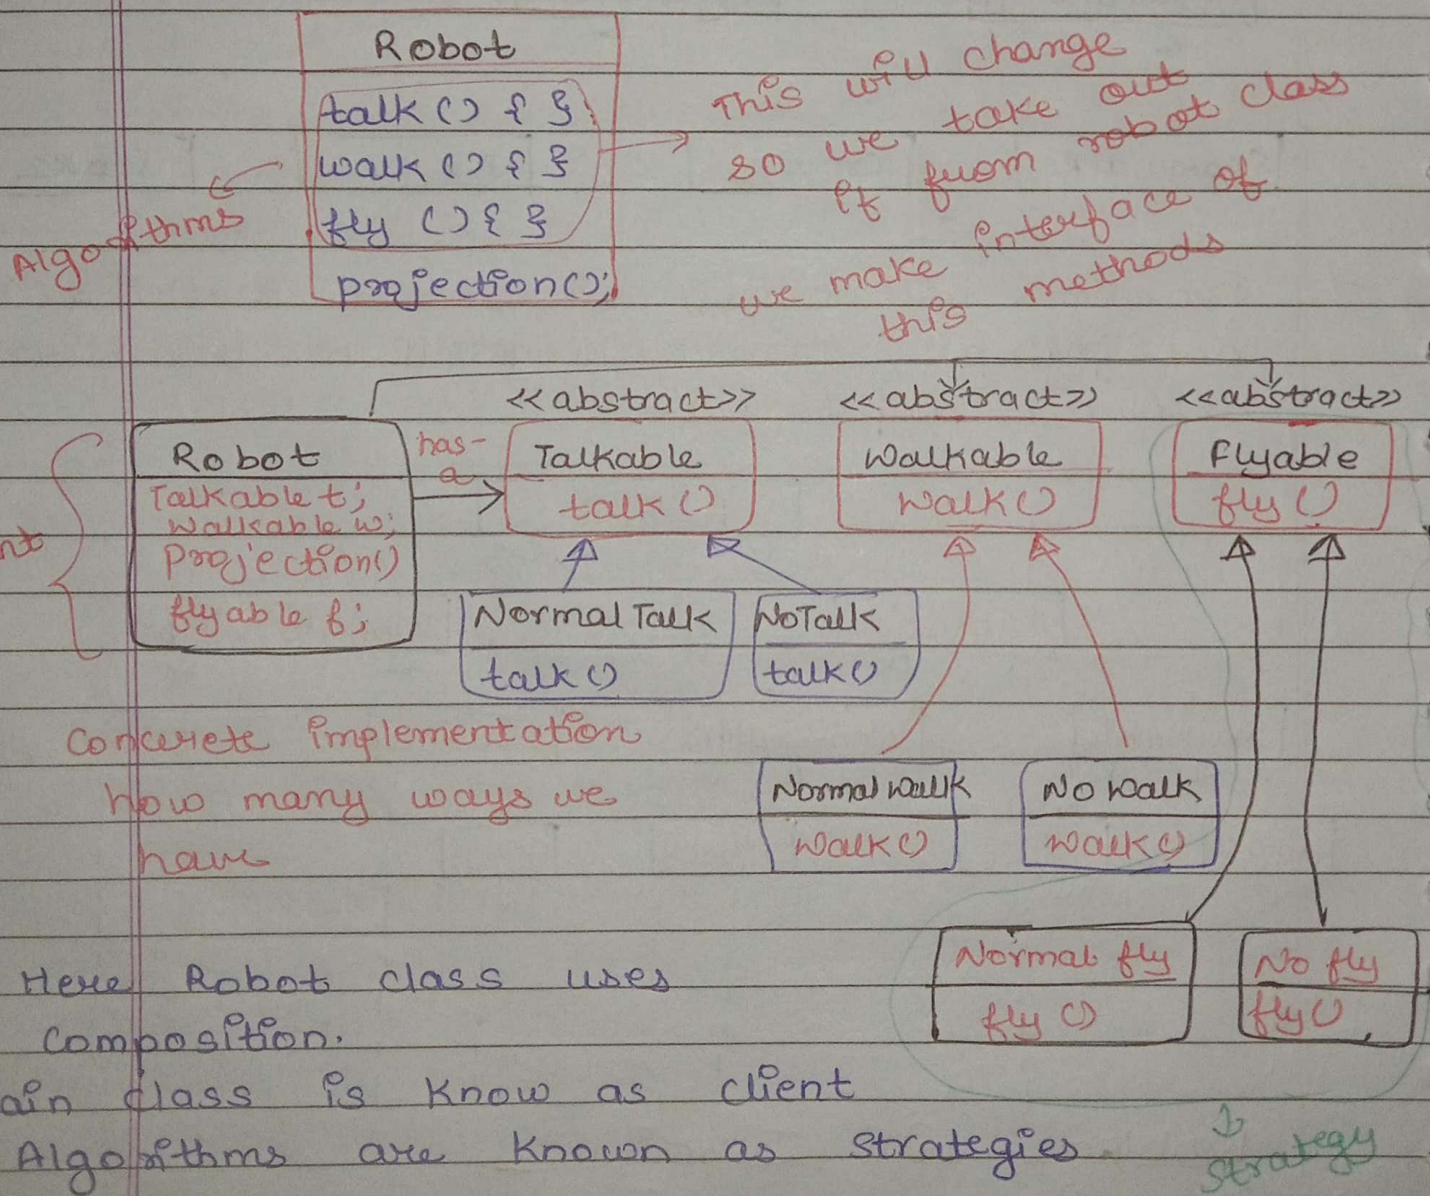 Robot
talk () { }
walk () { }
fly () { }
projection();
Algorithms
This will change
so we take out
it from robot class
we make interface of
this methods
<<abstract>> <<abstract>> <<abstract>>
Robot
Talkable t;
Walkable w;
projection()
flyable f;
has-
a
Talkable
talk ()
Walkable
walk ()
Flyable
fly ()
Normal Talk
talk ()
NoTalk
talk ()
Concrete implementation
how many ways we
have
Normal walk
walk ()
No walk
walk ()
Normal fly
fly ()
No fly
fly ()
Here Robot class uses
Composition.
ain class is know as client
Algorithms are known as strategies
strategy